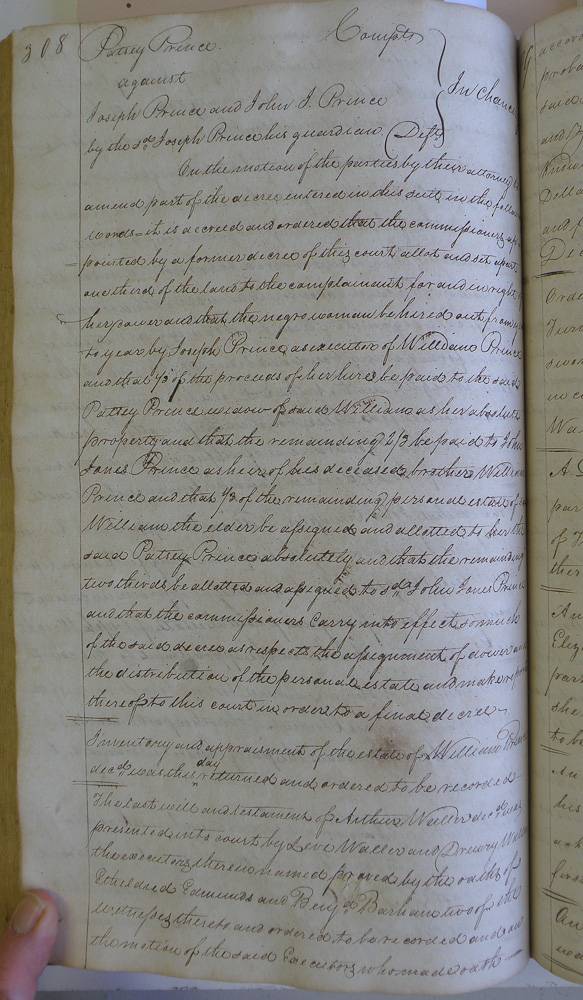 308
Patsey Prince. Complt
against
Joseph Prince and John J. Prince
by the sd. Joseph Prince his guardian. Defts
In Chance
On the motion of the parties by their attorney to
amend part of the decree entered in this suit in the follow
words = it is decreed and ordered that the commissioners ap
pointed by a former decree of this court allot and set apart
one third of the land to the complainant for and in right of
her dower and that the negro woman be hired out from year
to year by Joseph Prince as executor of William Prince
and that 1/3 of the proceeds of her hire be paid to the said
Patsey Prince widow of said William as her absolute
property and that the remaining 2/3 be paid to John
Jones Prince as heir of his deceased brother William
Prince and that 1/3 of the remaining personal estate of
William the elder be assigned and allotted to her the
said Patsey Prince absolutely and that the remaining
two thirds be allotted and assigned to the sd. John Jones Prince
and that the commissioners carry into effect so much
of the said decree as respects the assignment of dower and
the distribution of the personal estate and make report
thereof to this court in order to a final decree
Inventory and appraisment of the estate of William
decd. was this day returned and ordered to be recorded
The last will and testament of Arthur Waller decd. was
presented into court by Levi Waller and Drewry Waller
the executors therein named proved by the oaths of
Etheldred Edmunds and Benja. Barham two of the
witnesses thereto and ordered to be recorded and on
the motion of the said Executors who made oath